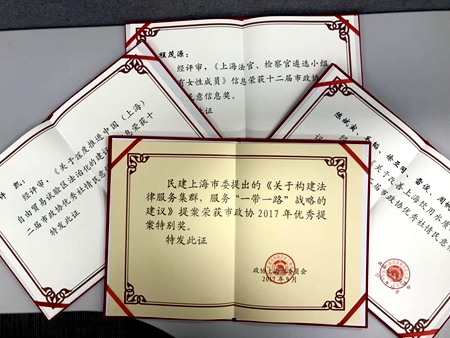 程茂源:
经评审,《上海法官、检察官遴选小组
有女性成员》信息荣获十二届市政协
民意信息奖。
此证
凯:
经评审,《关于深度推进中国(上海)
自由贸易试验区法治化的建议
信息荣获十
二届市政协优秀社情民意
特发此证
上海饮用水质
二届市政协优秀社情民意信
民建上海市委提出的《关于构建法
律服务集群,服务“一带一路”战略的
建议》提案荣获市政协2017年优秀提
案特别奖。
特发此证
政协上海市委员会
2017年9月